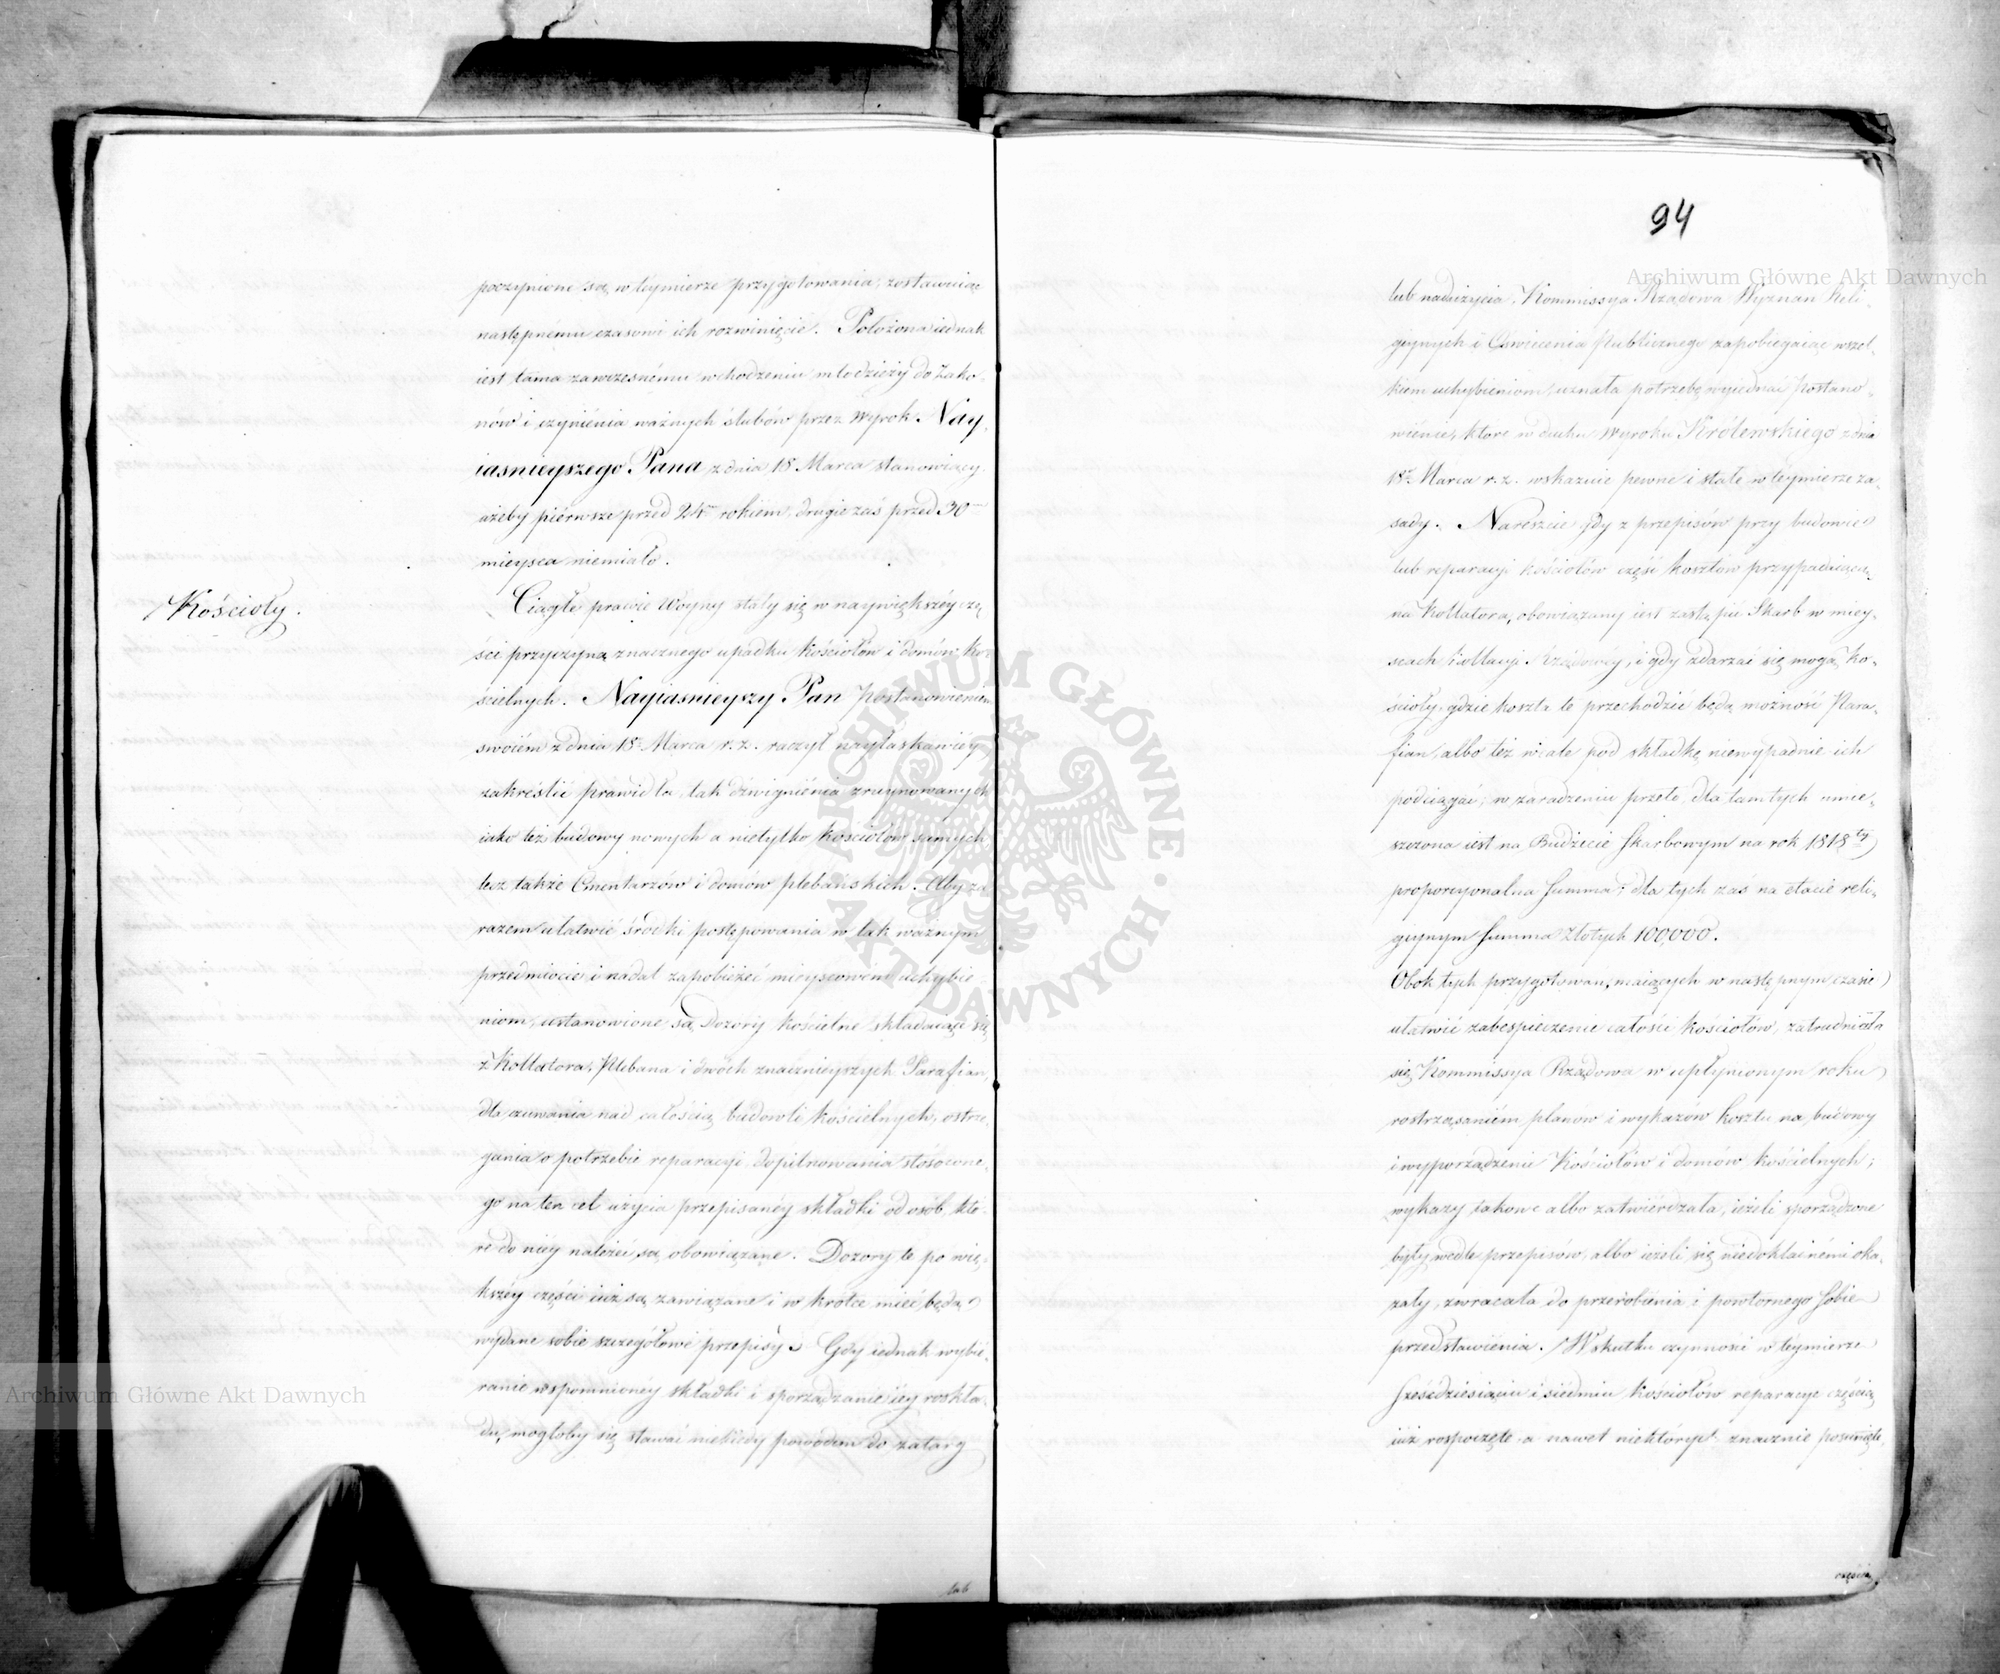 poczynione są w teymierze przygotowania, zostawuiąc
następnemu czasowi ich rozwinięcie. Położona iednak
iest tama zawczesnému wchodzeniu młodzieży do Zako-
nów i czynienia ważnych ślubów przez Wyrok Nay-
iaśnieyszego Pana z dnia 18 Marca stanowiący
ażeby piérwsze przed 24m rokiem, drugie zaś przed 30m
mieysca niemiało.
Kościoły.
Ciągłe prawie Woyny stały się w naywiększéy czę-
ści przyczyną znacznego upadku kościołów i domów ko-
ścielnych. Nayiaśnieyszy Pan Postanowieniem
swoiém z dnia 18 Marca r. z. raczył nayłaskawiéy
zakréślić prawidła, tak dzwignienia zruynowanych
iako też budowy nowych a nietylko kościołów samych
lecz także Cmentarzów i domów plebańskich. Aby za-
razem ułatwić środki postępowania w tak ważnym
przedmiocie i nadal zapobieżeć mieyscowém uchybie-
niom, ustanowione są Dozory kościelne składaiące się
z Kollatora, Plebana i dwóch znacznieyszych Parafian,
dla czuwania nad całością budowli kościelnych, ostrze-
gania o potrzebie reparacyi, dopilnowania stosowne-
go na ten cel użycia przepisanéy składki od osób, któ-
re do niéy należeć są obowiązane. Dozory te po wię-
kszéy części iuż są zawiązane i w krótce mieć będą
wydane sobie szczegółowe przepisy. Gdy iednak wybie-
ranie wspomnionéy składki i sporządzanie iéy rozkła-
du, mogłoby się stawać niekiedy powodem do zatarg
lub
94
lub nadużycia. Kommissya Rządowa Wyznań Reli-
giynych i Oświecenia Publicznego zapobiegaiąc wszel-
kiem uchybieniom, uznała potrzebę wyiednać Postano-
wienie, które w duchu Wyroku Królewskiego z dnia
18 Marca r. z. wskazuie pewne i stałe w teymierze za-
sady. Nareszcie gdy z przepisów przy budowie
lub reparacyi kościołów część kosztów przypadaiącą
na Kollatora, obowiązany iest zastąpić Skarb w miey-
scach kollacyi Rządowéy, i gdy zdarzać się mogą ko-
ścioły, gdzie koszta te przechodzić będą możność Para-
fian, albo też wcale pod składkę niewypadnie ich
podciągać; w zaradzeniu przeto, dla tamtych umie-
szczona iest na Budżecie Skarbowym na rok 1818ty
proporcyonalna Summa; dla tych zaś na etacie reli-
giynym Summa Złotych 100,000.
Obok tych przygotowań, maiących w następnym czasie
ułatwić zabespieczenie całości kościołów, zatrudniała
się Kommissya Rządowa w upłynionym roku
rostrząsaniém planów i wykazów kosztu na budowy
i wyporządzenie Kościołów i domów kościelnych;
wykazy takowe albo zatwiérdzała, ieżeli sporządzone
były wedle przepisów, albo ieżeli się niedokładnémi oka-
zały, zwracała do przerobienia i powtornego sobie
przedstawienia. W skutku czynności w teymierze
sześćdziesiąciu i siedmiu kościołów reparacye częścią
iuż rospoczęte a nawet niektórych znacznie posunięte,
częścią
Archiwum Główne Akt Dawnych
Archiwum Główne Akt Dawnych
ARCHIWUM GŁÓWNE · AKT DAWNYCH ·